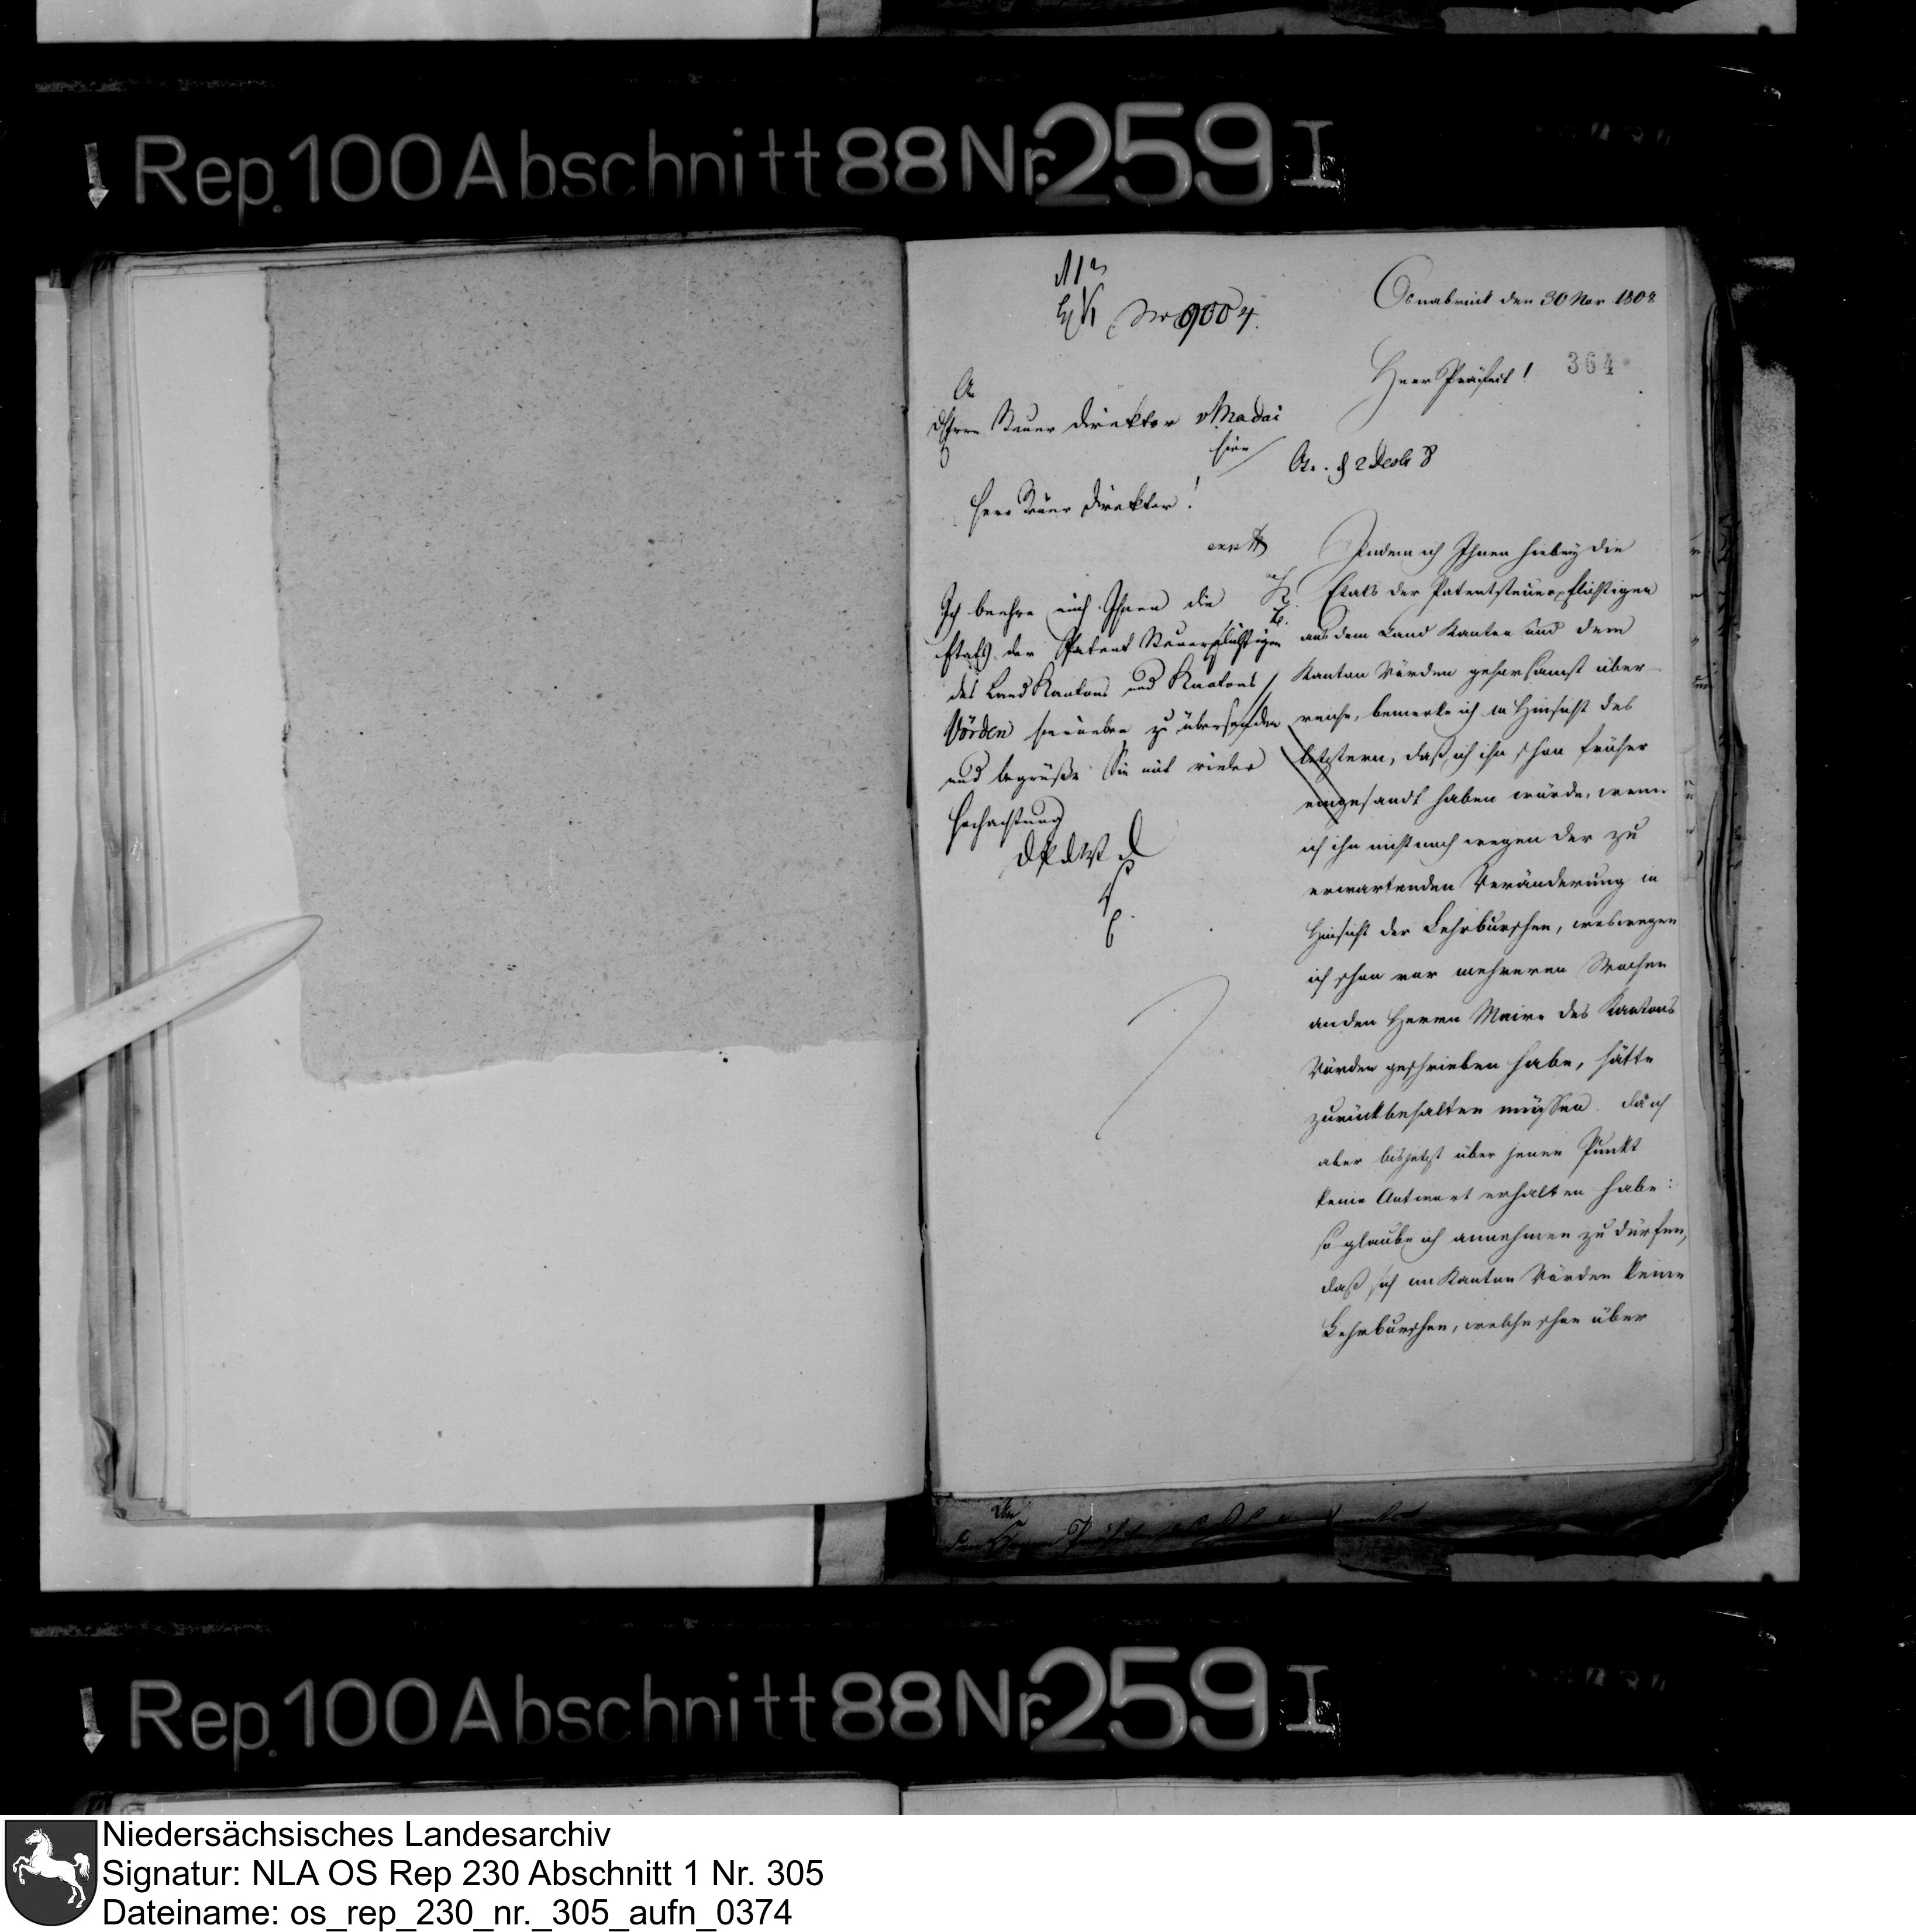 Rep. 100 Abschnitt 88 Nr. 259 I
Osnabrück den 30 Nov 1808
No 9004.
Herr Präfect!
364
An
d Herrn Steuer Direktor v Madai
hier
Herr Steuer Direktor!
Ich beehre mich Ihnen die
Etats der Patent Steuerpflichtigen
des Land Kantons und Kantons
Vörden hieneben zu übersenden
und begrüße Sie mit vieler
Hochachtung
D P d W D
Indem ich Ihnen hiebey die
Etats der Patentsteuerpflichtigen
aus dem Land Kanton und dem
Kanton Vörden gehorsamst über-
reiche, bemerke ich in Hinsicht des
letztern, daß ich ihn schon früher
eingesandt haben würde, wenn
ich ihn nicht noch wegen der zu
erwartenden Veränderung in
Hinsicht der Lehrburschen, weswegen
ich schon vor mehreren Wochen
an den Herrn Maire des Kantons
Vörden geschrieben habe, hätte
zurückbehalten müssen. Da ich
aber bis jetzt über jenen Punkt
keine Antwort erhalten habe:
so glaube ich annehmen zu dürfen,
daß sich im Kanton Vörden keine
Lehrburschen, welche schon über
An
den Herrn Präfekten
Rep. 100 Abschnitt 88 Nr. 259 I
Niedersächsisches Landesarchiv
Signatur: NLA OS Rep 230 Abschnitt 1 Nr. 305
Dateiname: os_rep_230_nr._305_aufn_0374